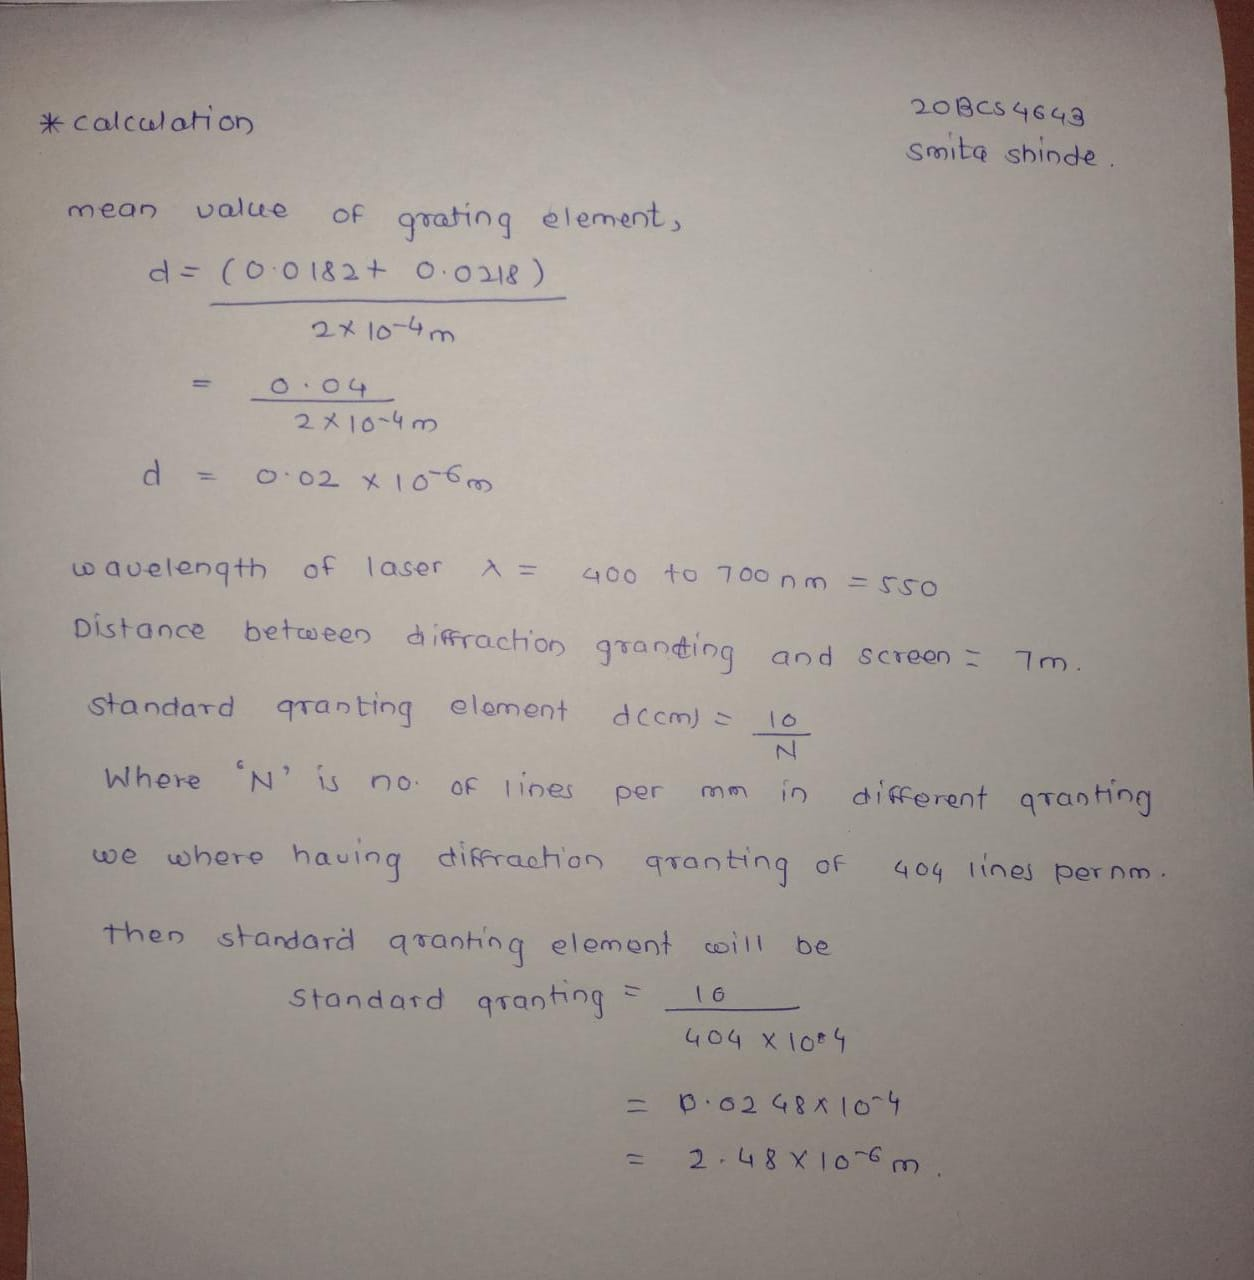 * calculation
20BCS4643
Smita shinde.
mean value of grating element,
d = (0.0182 + 0.0218)
2 x 10-4 m
= 0.04
2 x 10-4 m
d = 0.02 x 10-6 m
wavelength of laser λ = 400 to 700 nm = 550
Distance between diffraction grandting and screen = 7m.
standard granting element d(cm) = 10
N
Where 'N' is no. of lines per mm in different granting
we where having diffraction granting of 404 lines per nm.
then standard granting element will be
standard granting = 10
404 x 10^4
= 0.0248 x 10-4
= 2.48 x 10-6 m.